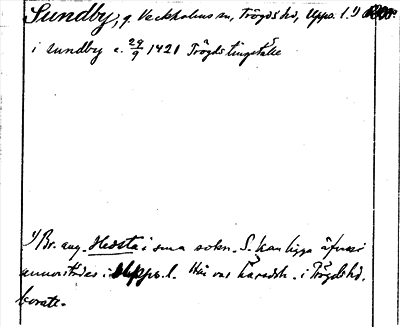 Sundby, g. Veckholms sn, Trögds hd, Upps. l. 1)
i sundby c. 29/9 1421 Trögds tingställe
1) Br. ang. Hessta i sma sokn. S. kan ligga äfven
annorstädes i Upps. l. Här var häradsh. i Trögds hd.
borate.